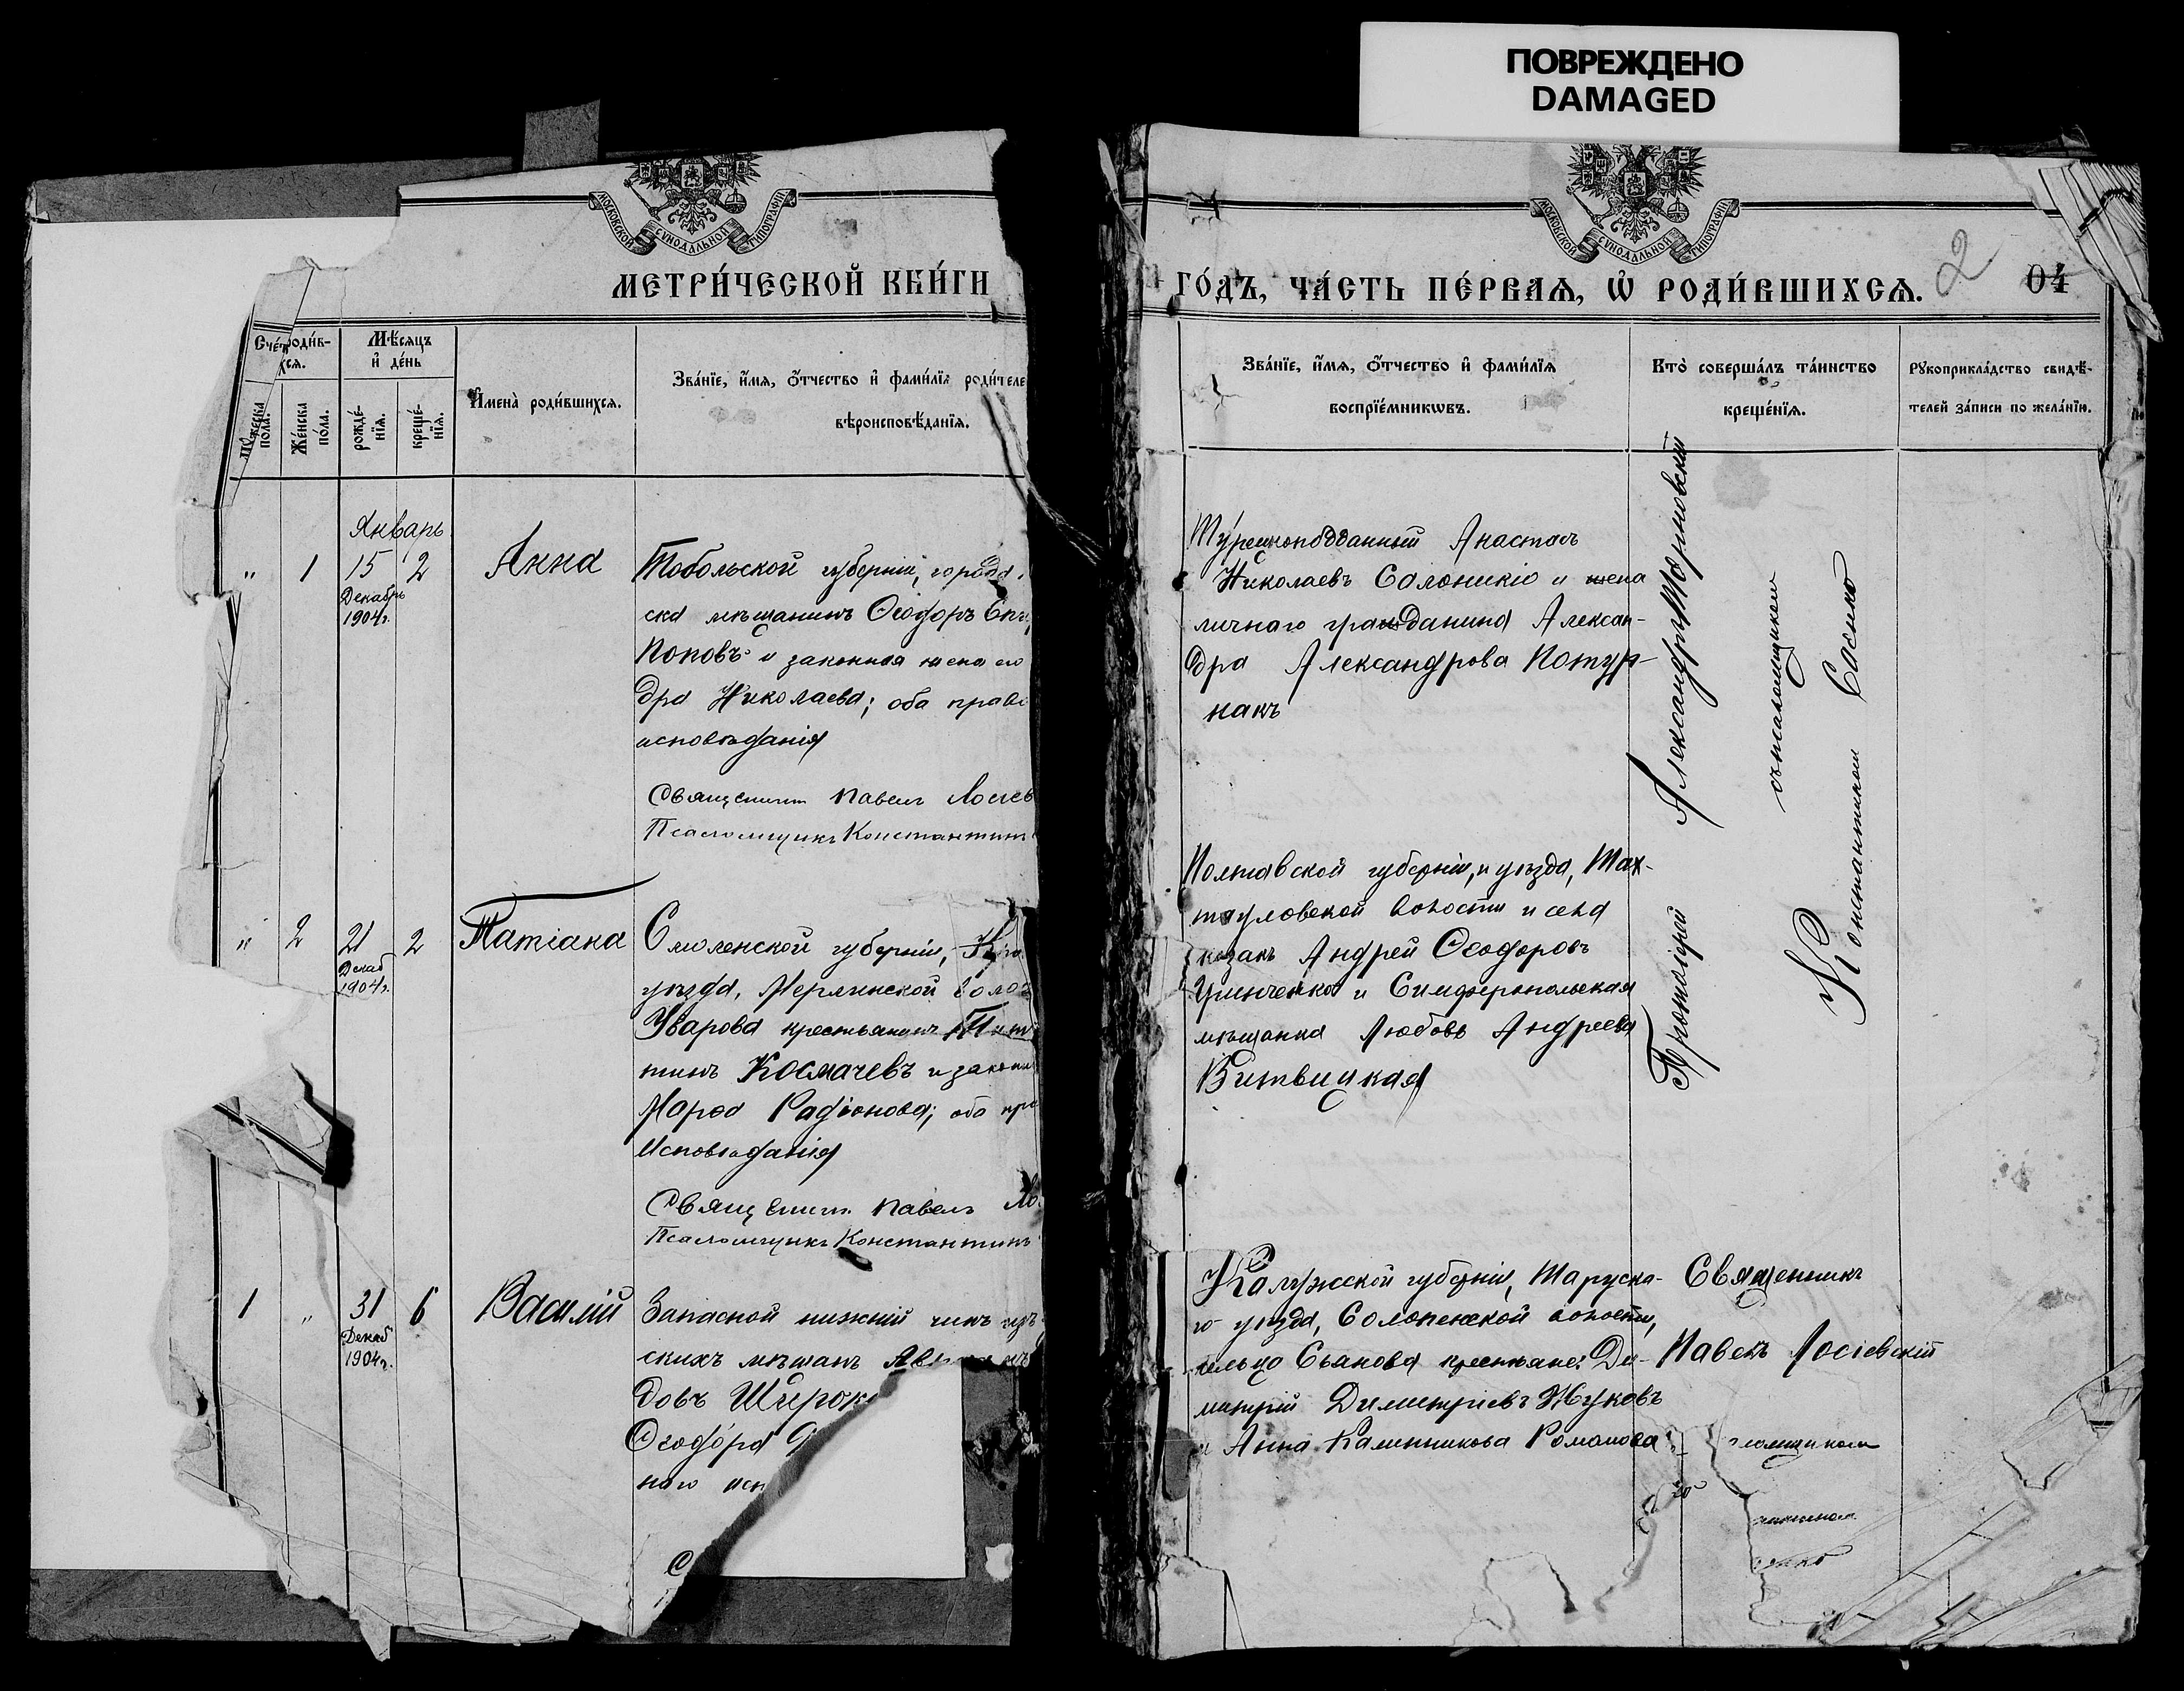 ПОВРЕЖДЕНО
DAMAGED
МОСКОВСКОЙ СѴНОДАЛЬНОЙ ТИПОГРАФІИ
МЕТРИ́ЧЕСКОЙ КНИ́ГИ
Сче́тъ роди́в-
хся.
Мѣ́сяцъ
и҆ де́нь
Му́жеска
по́ла.
Же́нска
по́ла.
рожде́-
нїя.
креще́-
нїя.
И҆мена̀ роди́вшихся.
Зва́нїе, и҆́мя, ѻ҆́тчество и҆ фами́лїя роди́теле
вѣроисповѣ́данїя.
Январь
" 1 15 2 Анна
Декабрь
1904г.
Тобольской губерніи, города
ска мѣщанинъ Ѳеодоръ
Поповъ и законная жена его
дра Николаева; оба прав
исповѣданія
Священникъ Павелъ Лосіев
Псаломщикъ Константинъ
" 2 21 2 Татіана
Декаб
1904г.
Смоленской губерніи,
уѣзда, Мерлинской воло
Уварова крестьянинъ
тинъ Космачевъ и законн
Марѳа Радіонова; оба пра
исповѣданія
Священникъ Павелъ Ло
Псаломщикъ Константинъ
1 " 31 6 Василій
Декаб
1904г.
Запасной нижній чинъ изъ
скихъ мѣщанъ
довъ Широк
Ѳеодора
наго исп
С
МОСКОВСКОЙ СѴНОДАЛЬНОЙ ТИПОГРАФІИ
ГО́ДЪ, ЧА́СТЬ ПЕ́РВАЯ, Ѡ҆ РОДИ́ВШИХСЯ. 2 04
Зва́нїе, и҆́мя, ѻ҆́тчество и҆ фами́лїя
воспрїе́мникѡвъ.
Кто̀ соверша́лъ та́инство
креще́нїя.
Рꙋкоприкла́дство свидѣ́-
телей за́писи по жела́нїю.
Турецкоподданный Анастасъ
Николаевъ Солоникіо и жена
личнаго гражданина Алексан-
дра Александрова Котур-
накъ
Протоіерей Александръ Терновскій
съ псаломщикомъ
Константиномъ Сасько
Полтавской губерніи, и уѣзда, Тах-
тауловской волости и села
казакъ Андрей Ѳеодоровъ
и Симферопольская
мѣщанка Любовь Андреева
Витвицкая
Калужской губерніи, Таруска-
го уѣзда, Солопенской волости,
сельца Сьянова крестьяне: Ди-
митрій Димитріевъ Жуковъ
и Анна Калинникова Романова
Священникъ
Павелъ Лосіевскій
ломщикомъ